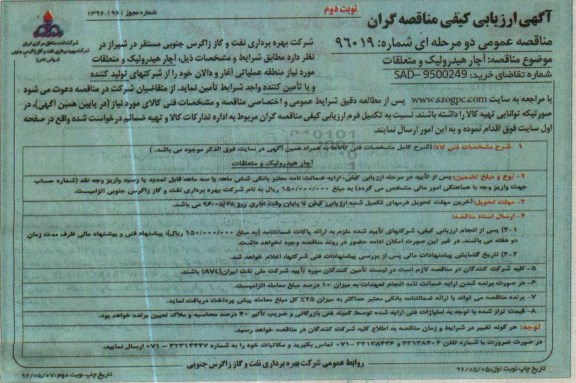 نوبت دوم
شماره مجوز: ۱۳۹۶،۱۹۶۰
آگهی ارزیابی کیفی مناقصه گران
مناقصه عمومی دو مرحله ای شماره: ۹۶۰۱۹
موضوع مناقصه: آچار هیدرولیک و متعلقات
شماره تقاضای خرید: SAD- 9500249
شرکت بهره برداری نفت و گاز زاگرس جنوبی مستقر در شیراز در
نظر دارد مطابق شرایط و مشخصات ذیل، آچار هیدرولیک و متعلقات
مورد نیاز منطقه عملیاتی آغار و دالان خود را از شرکتهای تولید کننده
و یا تأمین کننده واجد شرایط تأمین نماید. از متقاضیان شرکت در مناقصه دعوت می شود
با مراجعه به سایت www.szogpc.com پس از مطالعه دقیق شرایط عمومی و اختصاصی مناقصه و مشخصات فنی کالای مورد نیاز (در پایین همین آگهی)، در
صورتیکه توانایی تهیه کالا را داشته باشند، نسبت به تکمیل فرم ارزیابی کیفی مناقصه گران مربوط به اداره تدارکات کالا و تهیه ضمائم درخواست شده واقع در صفحه
اول سایت فوق اقدام نموده و به این امور ارسال نمایند.
۱- شرح مشخصات فنی کالا: (شرح کامل مشخصات فنی کالاها به همراه همین آگهی در سایت فوق الذکر موجود می باشد.)
آچار هیدرولیک و متعلقات
۲- نوع و مبلغ تضمین: پس از تأیید در مرحله ارزیابی کیفی، ارایه ضمانت نامه معتبر بانکی شش ماهه یا سه ماهه قابل تمدید یا رسید واریز وجه نقد (شماره حساب
جهت واریز وجه با هماهنگی امور مالی مشخص می گردد) به مبلغ ۱۵۰/۰۰۰/۰۰۰ ریال به نام شرکت بهره برداری نفت و گاز زاگرس جنوبی الزامیست.
۳- مهلت تحویل: آخرین مهلت تحویل فرمهای تکمیل شده ارزیابی کیفی تا پایان وقت اداری روز ۹۶/۰۵/۲۸ می باشد.
۴- ارسال اسناد مناقصه:
۴-۱) پس از انجام ارزیابی کیفی، شرکتهای تأیید شده ملزم به ارائه پاکات ضمانتنامه (به مبلغ ۱۵۰/۰۰۰/۰۰۰ ریال)، پیشنهاد فنی و پیشنهاد مالی ظرف مدت زمان
دو هفته می باشند. در غیر این صورت امکان ادامه حضور در روند مناقصه وجود نخواهد داشت.
۴-۲) تاریخ گشایش پیشنهادات مالی پس از بررسی پیشنهادات فنی شرکتها، اعلام خواهد شد.
۵- کلیه شرکت کنندگان در مناقصه لازم است در لیست تأمین کنندگان مورد تأیید شرکت ملی نفت ایران(AVL) باشند.
۶- در صورت برنده شدن ارایه ضمانت نامه انجام تعهدات به میزان ۱۰ درصد مبلغ معامله الزامیست.
۷- برنده مناقصه می تواند با ارائه ضمانتنامه بانکی معتبر حداکثر به میزان ۲۵٪ کل مبلغ معامله پیش پرداخت دریافت نماید.
۸- قیمت تراز شده با توجه به امتیازات فنی ارایه شده توسط کمیته فنی بازرگانی و ضریب تأثیر ۴۰ درصد محاسبه و ملاک تعیین برنده خواهد بود.
توجه: هر گونه تغییر در شرایط و زمان مناقصه به اطلاع کلیه شرکت کنندگان در مناقصه خواهد رسید.
در صورت ضرورت با شماره تلفن ۳۲۱۳۸۴۰۴ و ۳۲۱۳۸۴۳۶ - ۰۷۱ تماس بگیرید و مکاتبات خود را به شماره ۳۲۳۱۴۴۴۷ - ۰۷۱ ارسال نمایید.
روابط عمومی شرکت بهره برداری نفت و گاز زاگرس جنوبی
تاریخ چاپ نوبت اول: ۹۶/۰۵/۰۵
تاریخ چاپ نوبت دوم: ۹۶/۰۵/۰۷